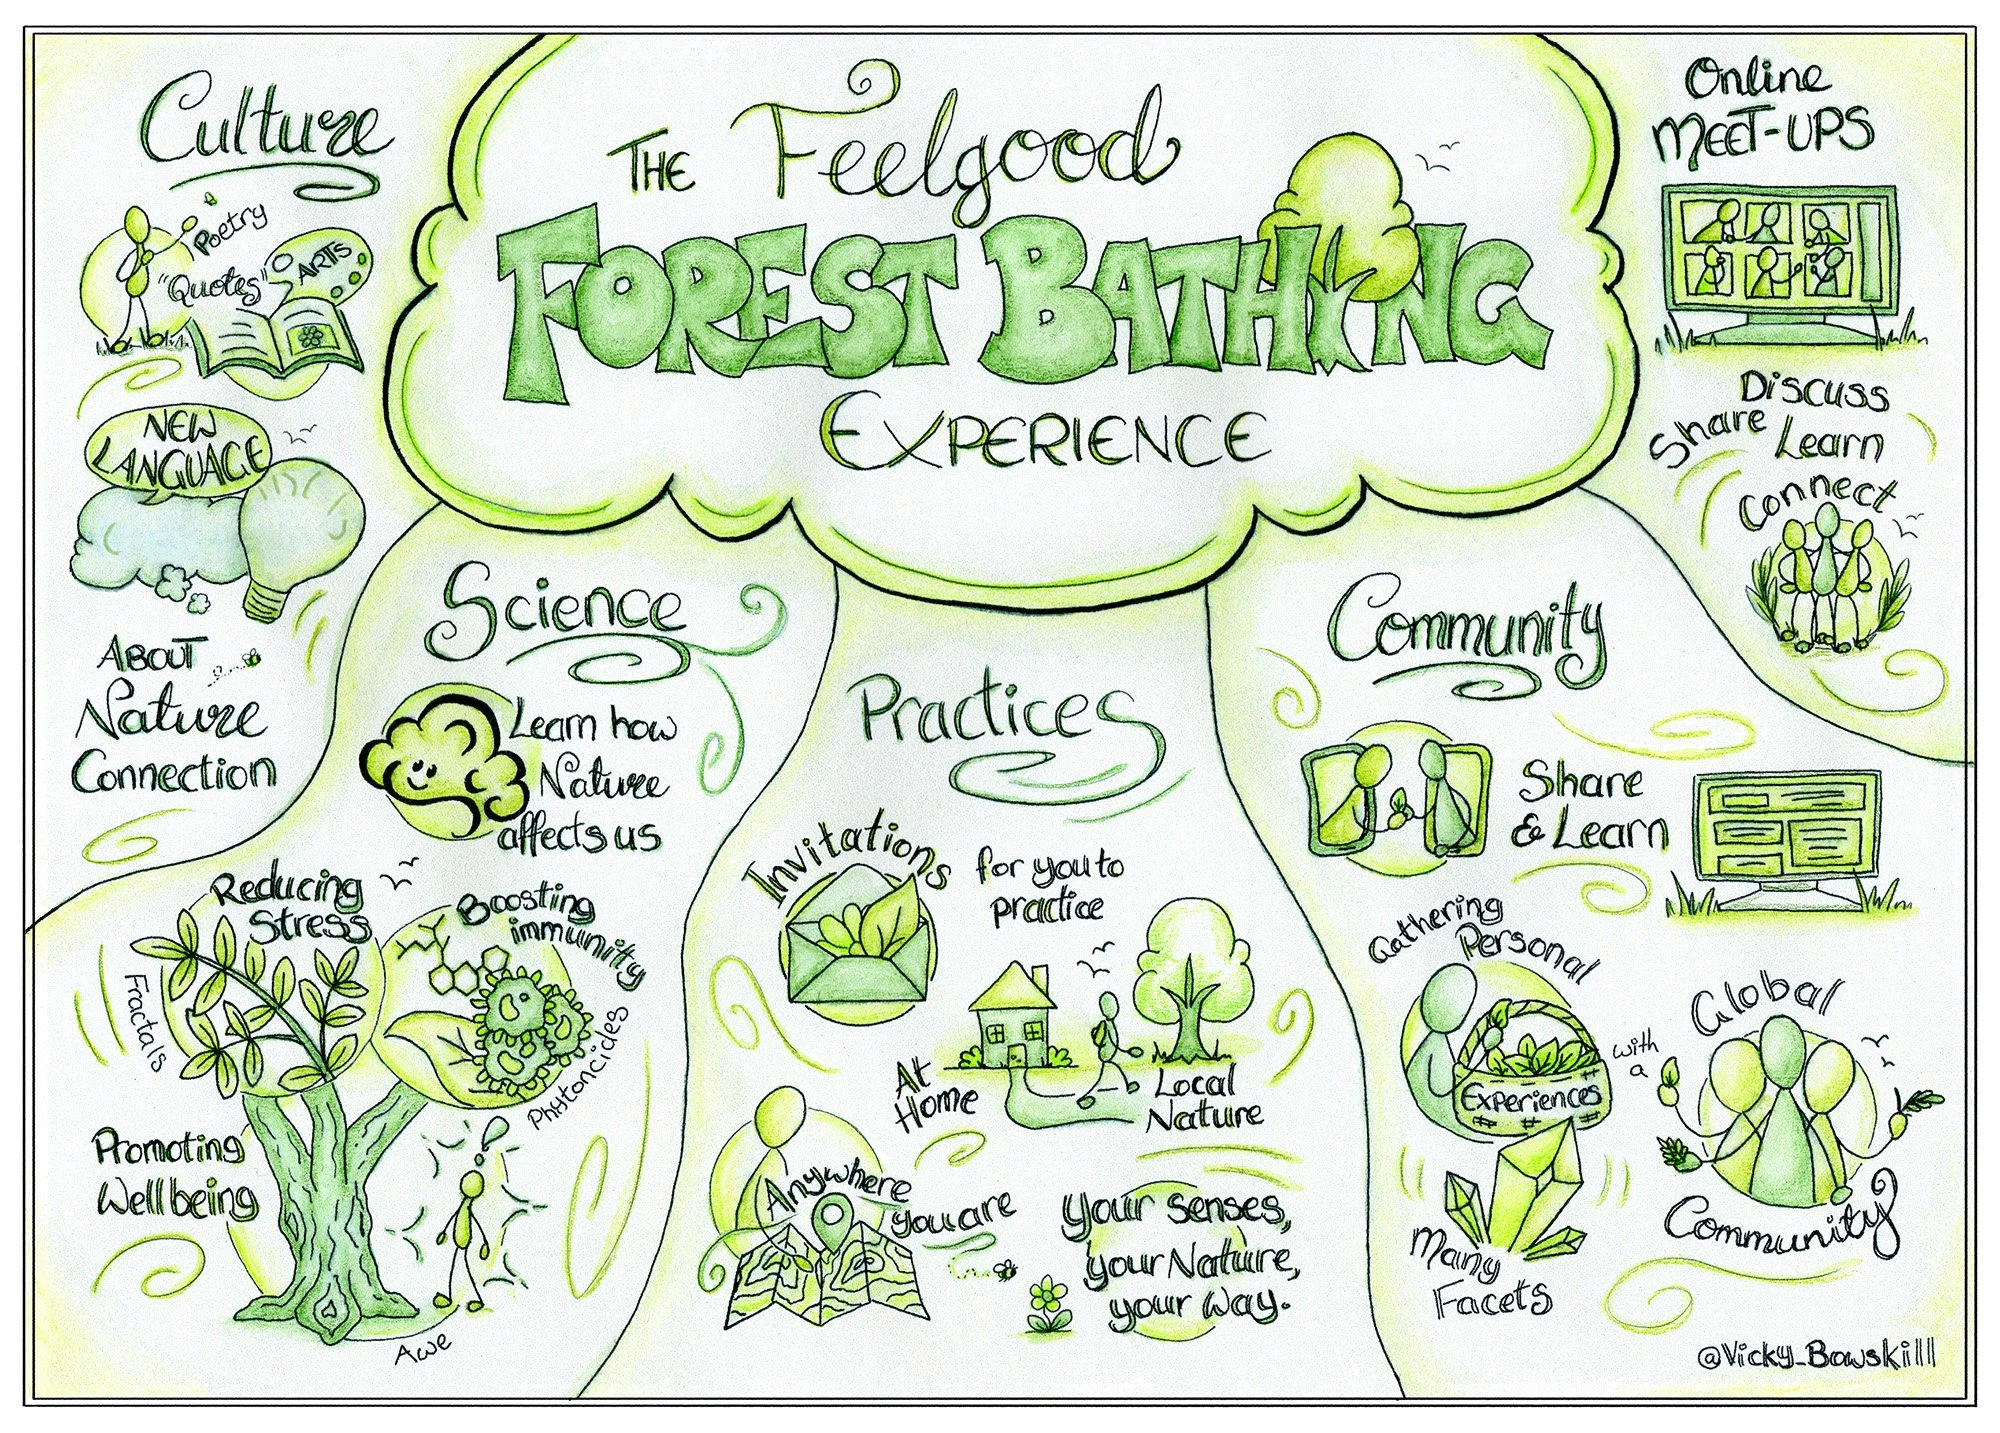 THE Feelgood
FOREST BATHING
EXPERIENCE
Culture
Poetry
"Quotes"
ARTS
NEW
LANGUAGE
ABOUT
Nature
Connection
Science
Learn how
Nature
affects us
Reducing
Stress
Fractals
Boosting
immunity
Phytoncides
Promoting
Wellbeing
Awe
Practices
Invitations
for you to
practice
At
Home
Local
Nature
Anywhere
you are
Your senses,
your Nature,
your way.
Community
Share
& Learn
Gathering
Personal
Experiences
with
a
Global
Community
Many
Facets
Online
MEET-UPS
Discuss
Share
Learn
Connect
@Vicky_Bowskill